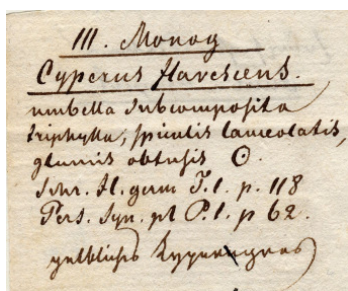 III. Monog
Cyperus flavescens.
umbella subcomposita
triphylla, spiculis lanceolatis,
glumis obtusis ⊙.
Schr. fl. germ T. 1. p. 118
Pers. Syn. pl P. 1. p 62.
gelbliches Cyperngras